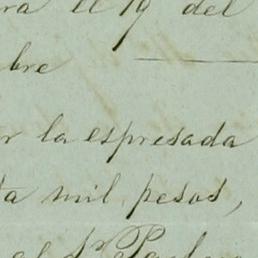 ra el 19 del
bre
r la espresada
ta mil pesos,
al Sr. P